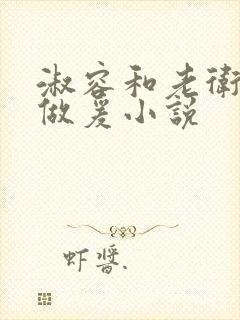 淑容和老衛
做爰小説
虾醬.